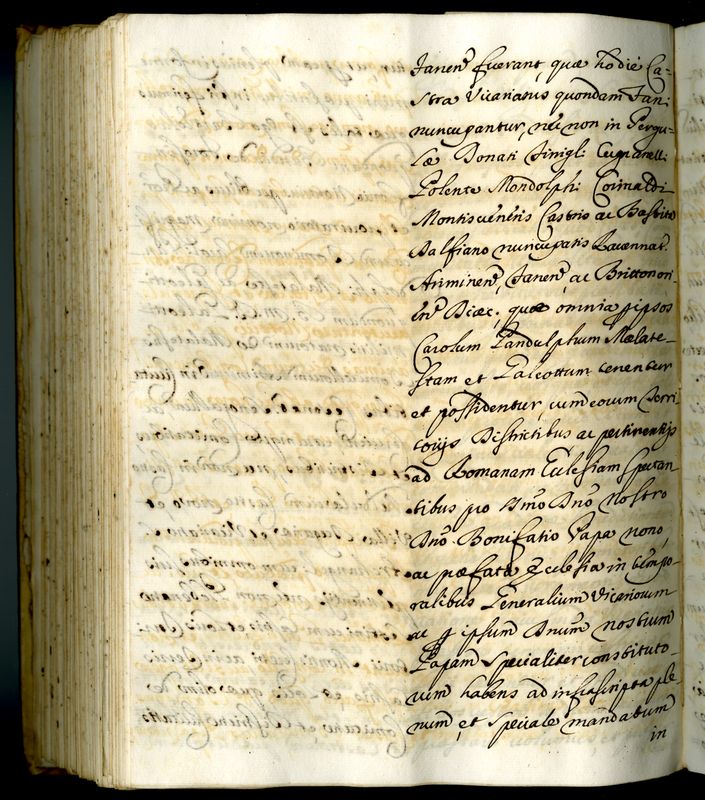 fanen̄ fuerant, quæ hodie Ca=
stra Vicariatus quondam fan:
nuncupantur, nec non in Pergu=
læ Donati Sinigli: Cupranelli
Polente Mondolphi Corinaldi
Montisueneris Castris ac Bastita
Balfiano nuncupatis Rauennat:
Ariminen̄, fanen̄, ac Brittonori
en̄ Diæc: quæ omnia p ipsos
Carolum Pandulphum Malate=
stam et Galeottum tenentur
et possidentur, cum eorum Terri=
torijs Districtibus ac pertinentijs
ad Romanam Ecclesiam spectan
tibus pro Dn̄o Dn̄o Nostro
Dn̄o Bonifatio Papa nono,
ac præfata Ecclesia in tempo=
ralibus Generalium Vicariorum
ac p ipsum Dnum nostrum
Papam specialiter constituto=
rum habens ad infrascripta ple
num et speciale mandatum
in